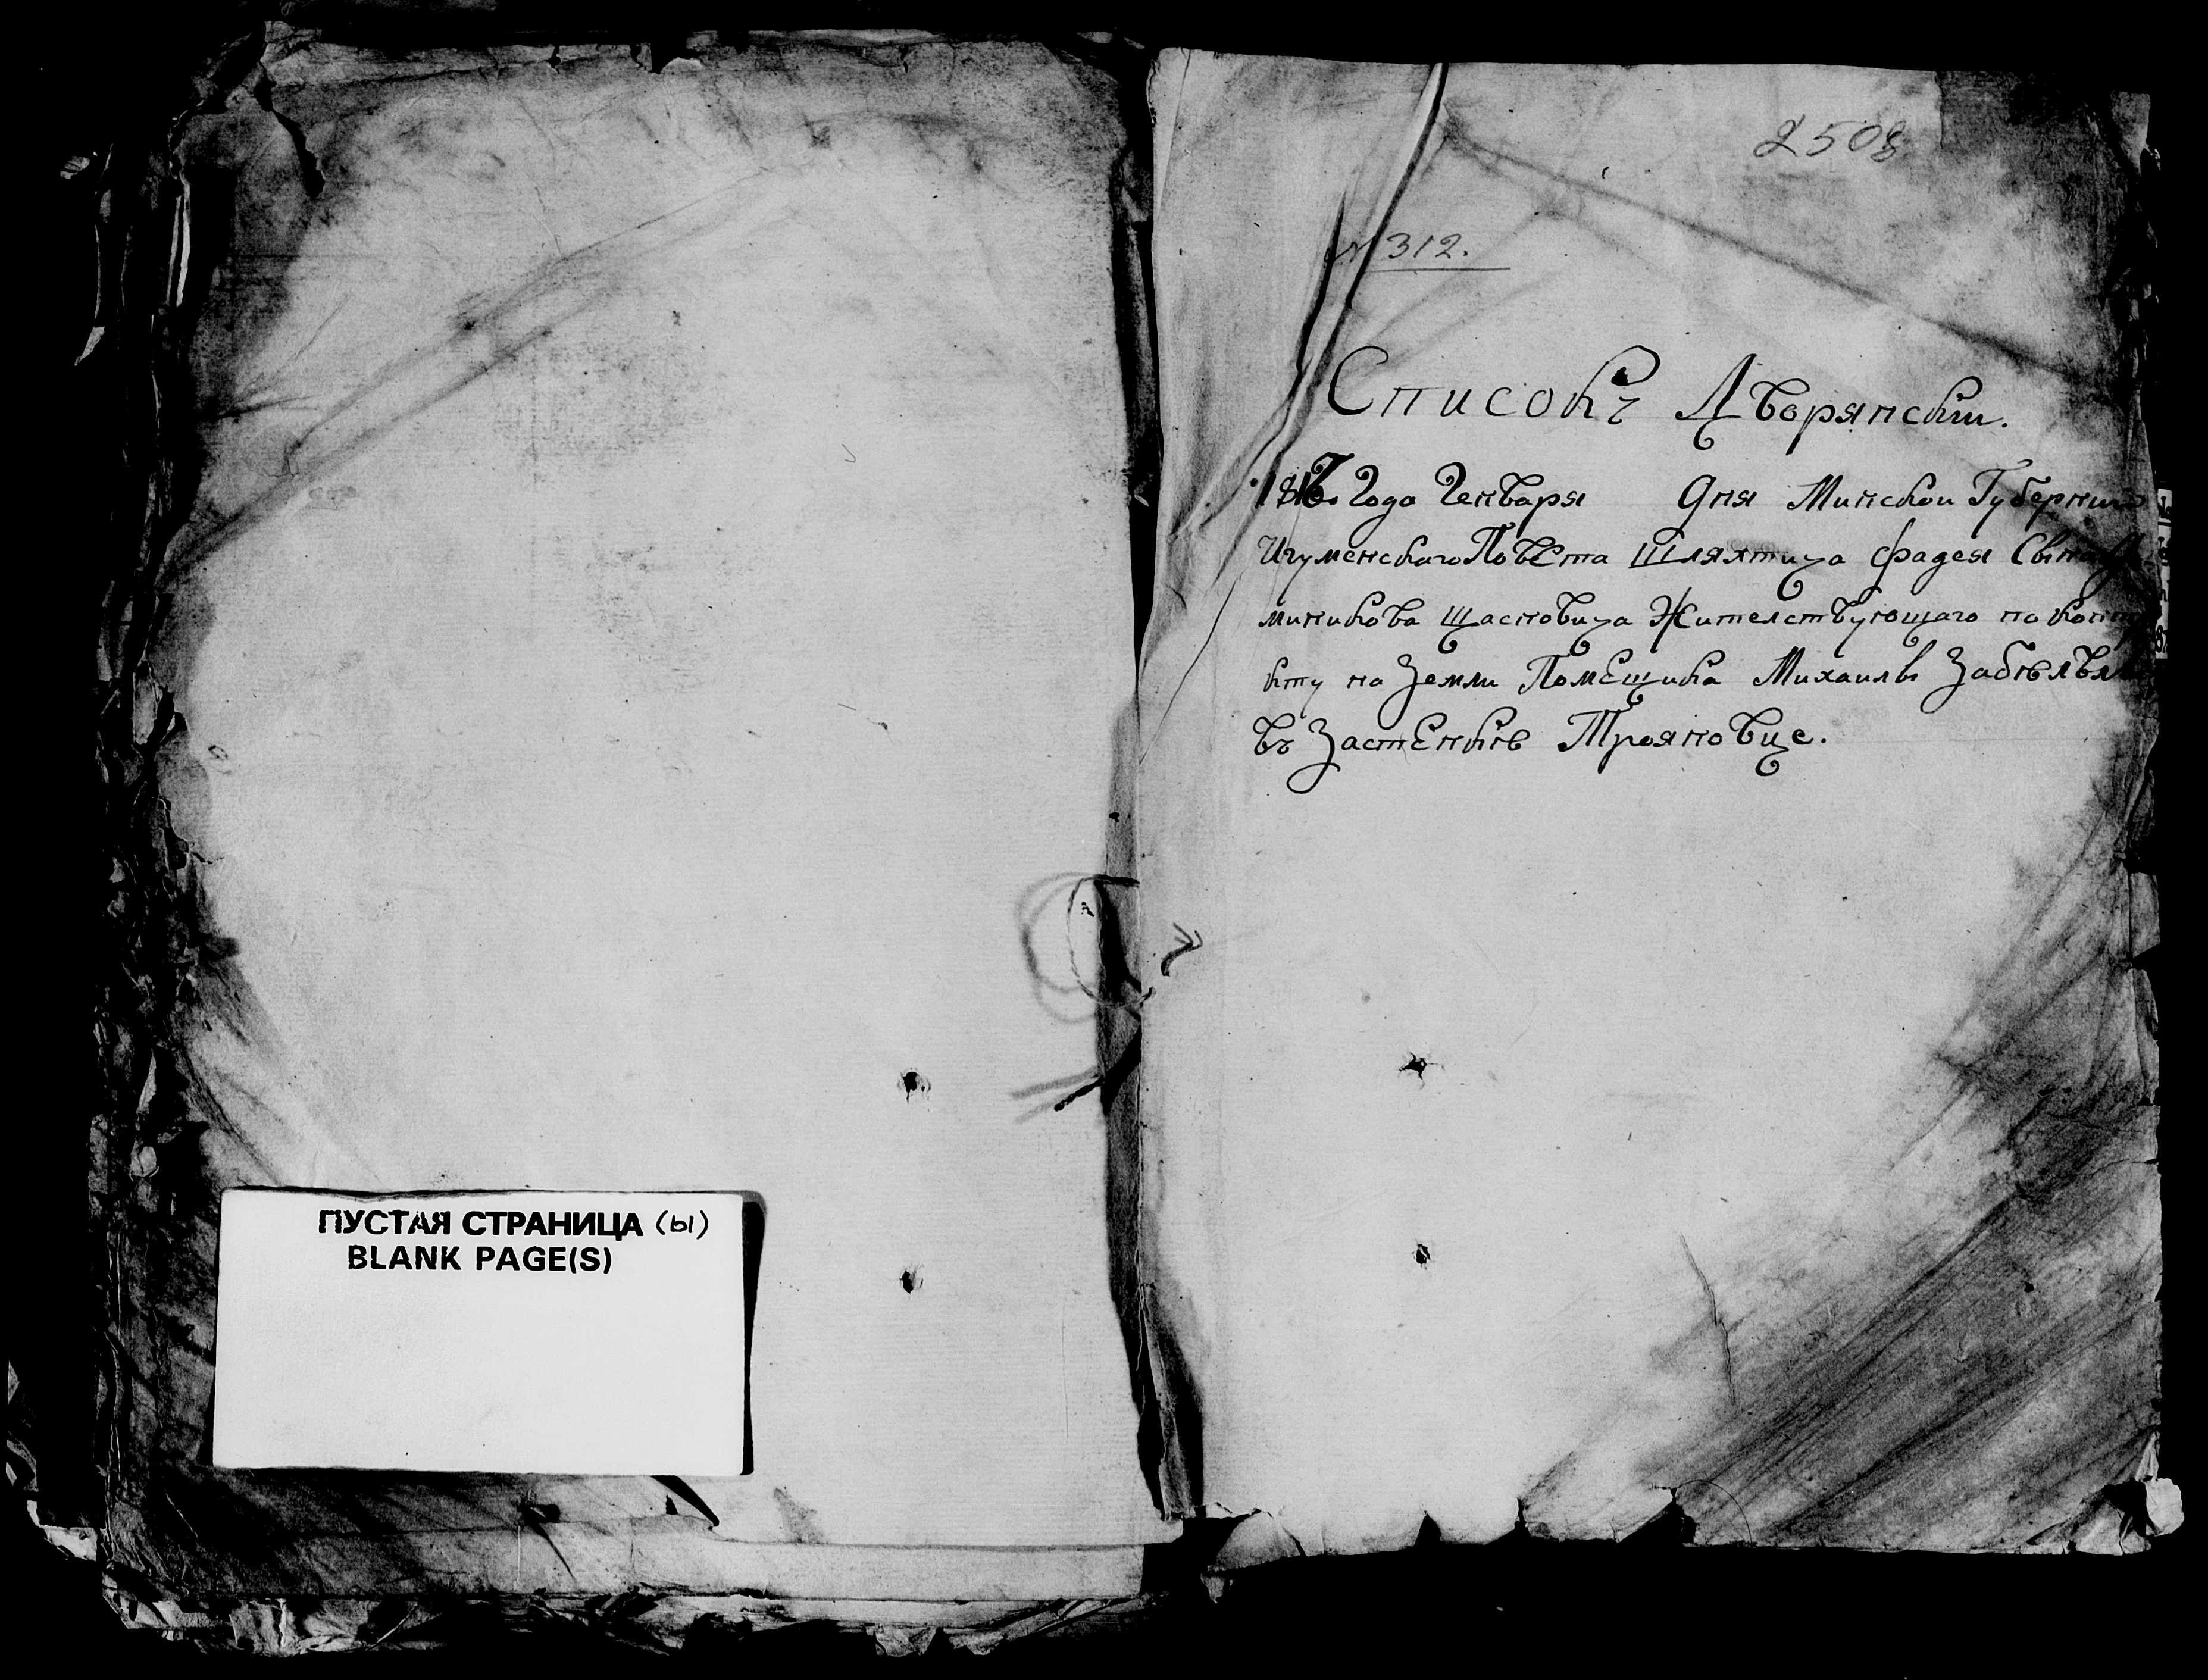 ПУСТАЯ СТРАНИЦА (ы)
BLANK PAGE(S)
2508
N 312.
Списокъ Дворянскiи.
Года Генваря Дня Минскои Губернии
Игуменскаго Повѣта Шляхтича Фадея
миникова Щасновича Жителствующаго по
кту на Земли Помѣщика Михаилы
въ Застѣнкѣ Трояновце.